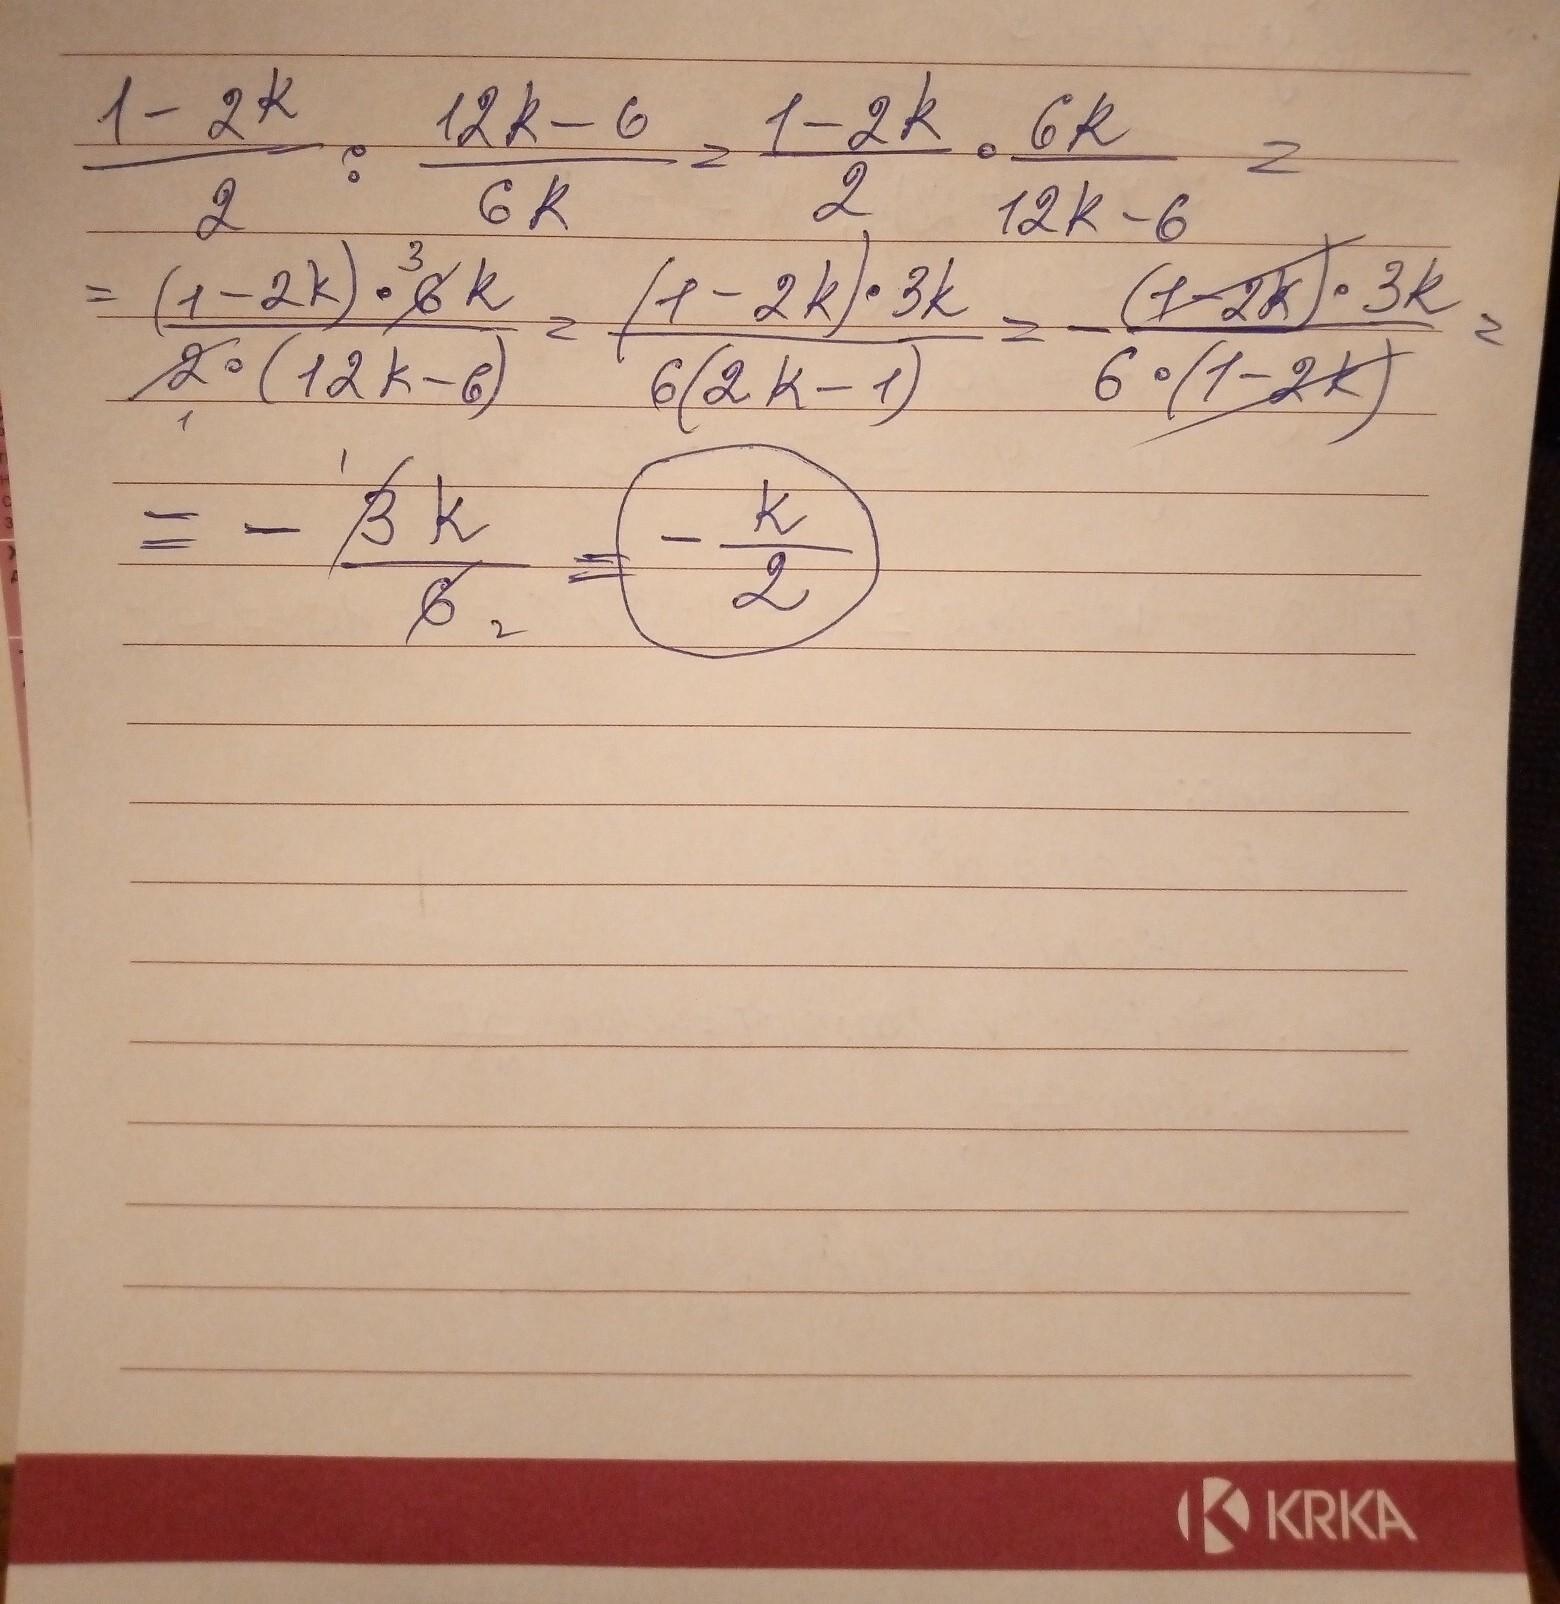 1 - 2k / 2 : 12k - 6 / 6k = 1 - 2k / 2 · 6k / 12k - 6 =
= (1 - 2k) · 6k 3 / 2 · (12k - 6) 1 = (1 - 2k) · 3k / 6(2k - 1) = - (1 - 2k) · 3k / 6 · (1 - 2k) =
= - 1 3k / 6 2 = - k / 2
KRKA